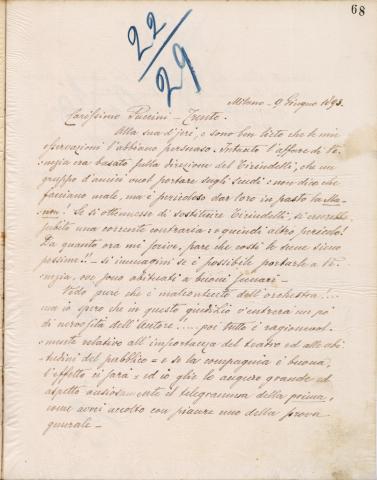 68
22/29
Milano - 9 Giugno 1893.
Carissimo Puccini - Trento.
Alla sua d'jeri, e sono ben lieto che le mie
osservazioni l'abbiano persuaso. Intanto l'affare di Ve-
nezia era basato sulla direzione del Tirindelli, che un
gruppo d'amici vuol portare sugli scudi: non dico che
facciano male, ma è pericoloso dar loro in pasto la Ma-
non! Se si ottenesse di sostituire Tirindelli, si creerebbe
subito una corrente contraria: e quindi altro pericolo!
Da quanto ora mi scrive, pare che costì le scene sieno
pessime!! - si immagini se è possibile portarle a Ve-
nezia, ove sono abituati a buoni scenari -
Vedo pure che è malcontento dell'orchestra!....
ma io spero che in questo giudizio c'entrerà un pò
di nervosità dell'Autore!..... poi tutto è ragionevol-
mente relativo all'importanza del teatro ed alle abi-
tudini del pubblico - e se la compagnia è buona,
l'effetto ci sarà - ed io glie lo auguro grande ed
aspetto ansiosamente il telegramma della prima,
come avrei accolto con piacere uno della prova
generale -